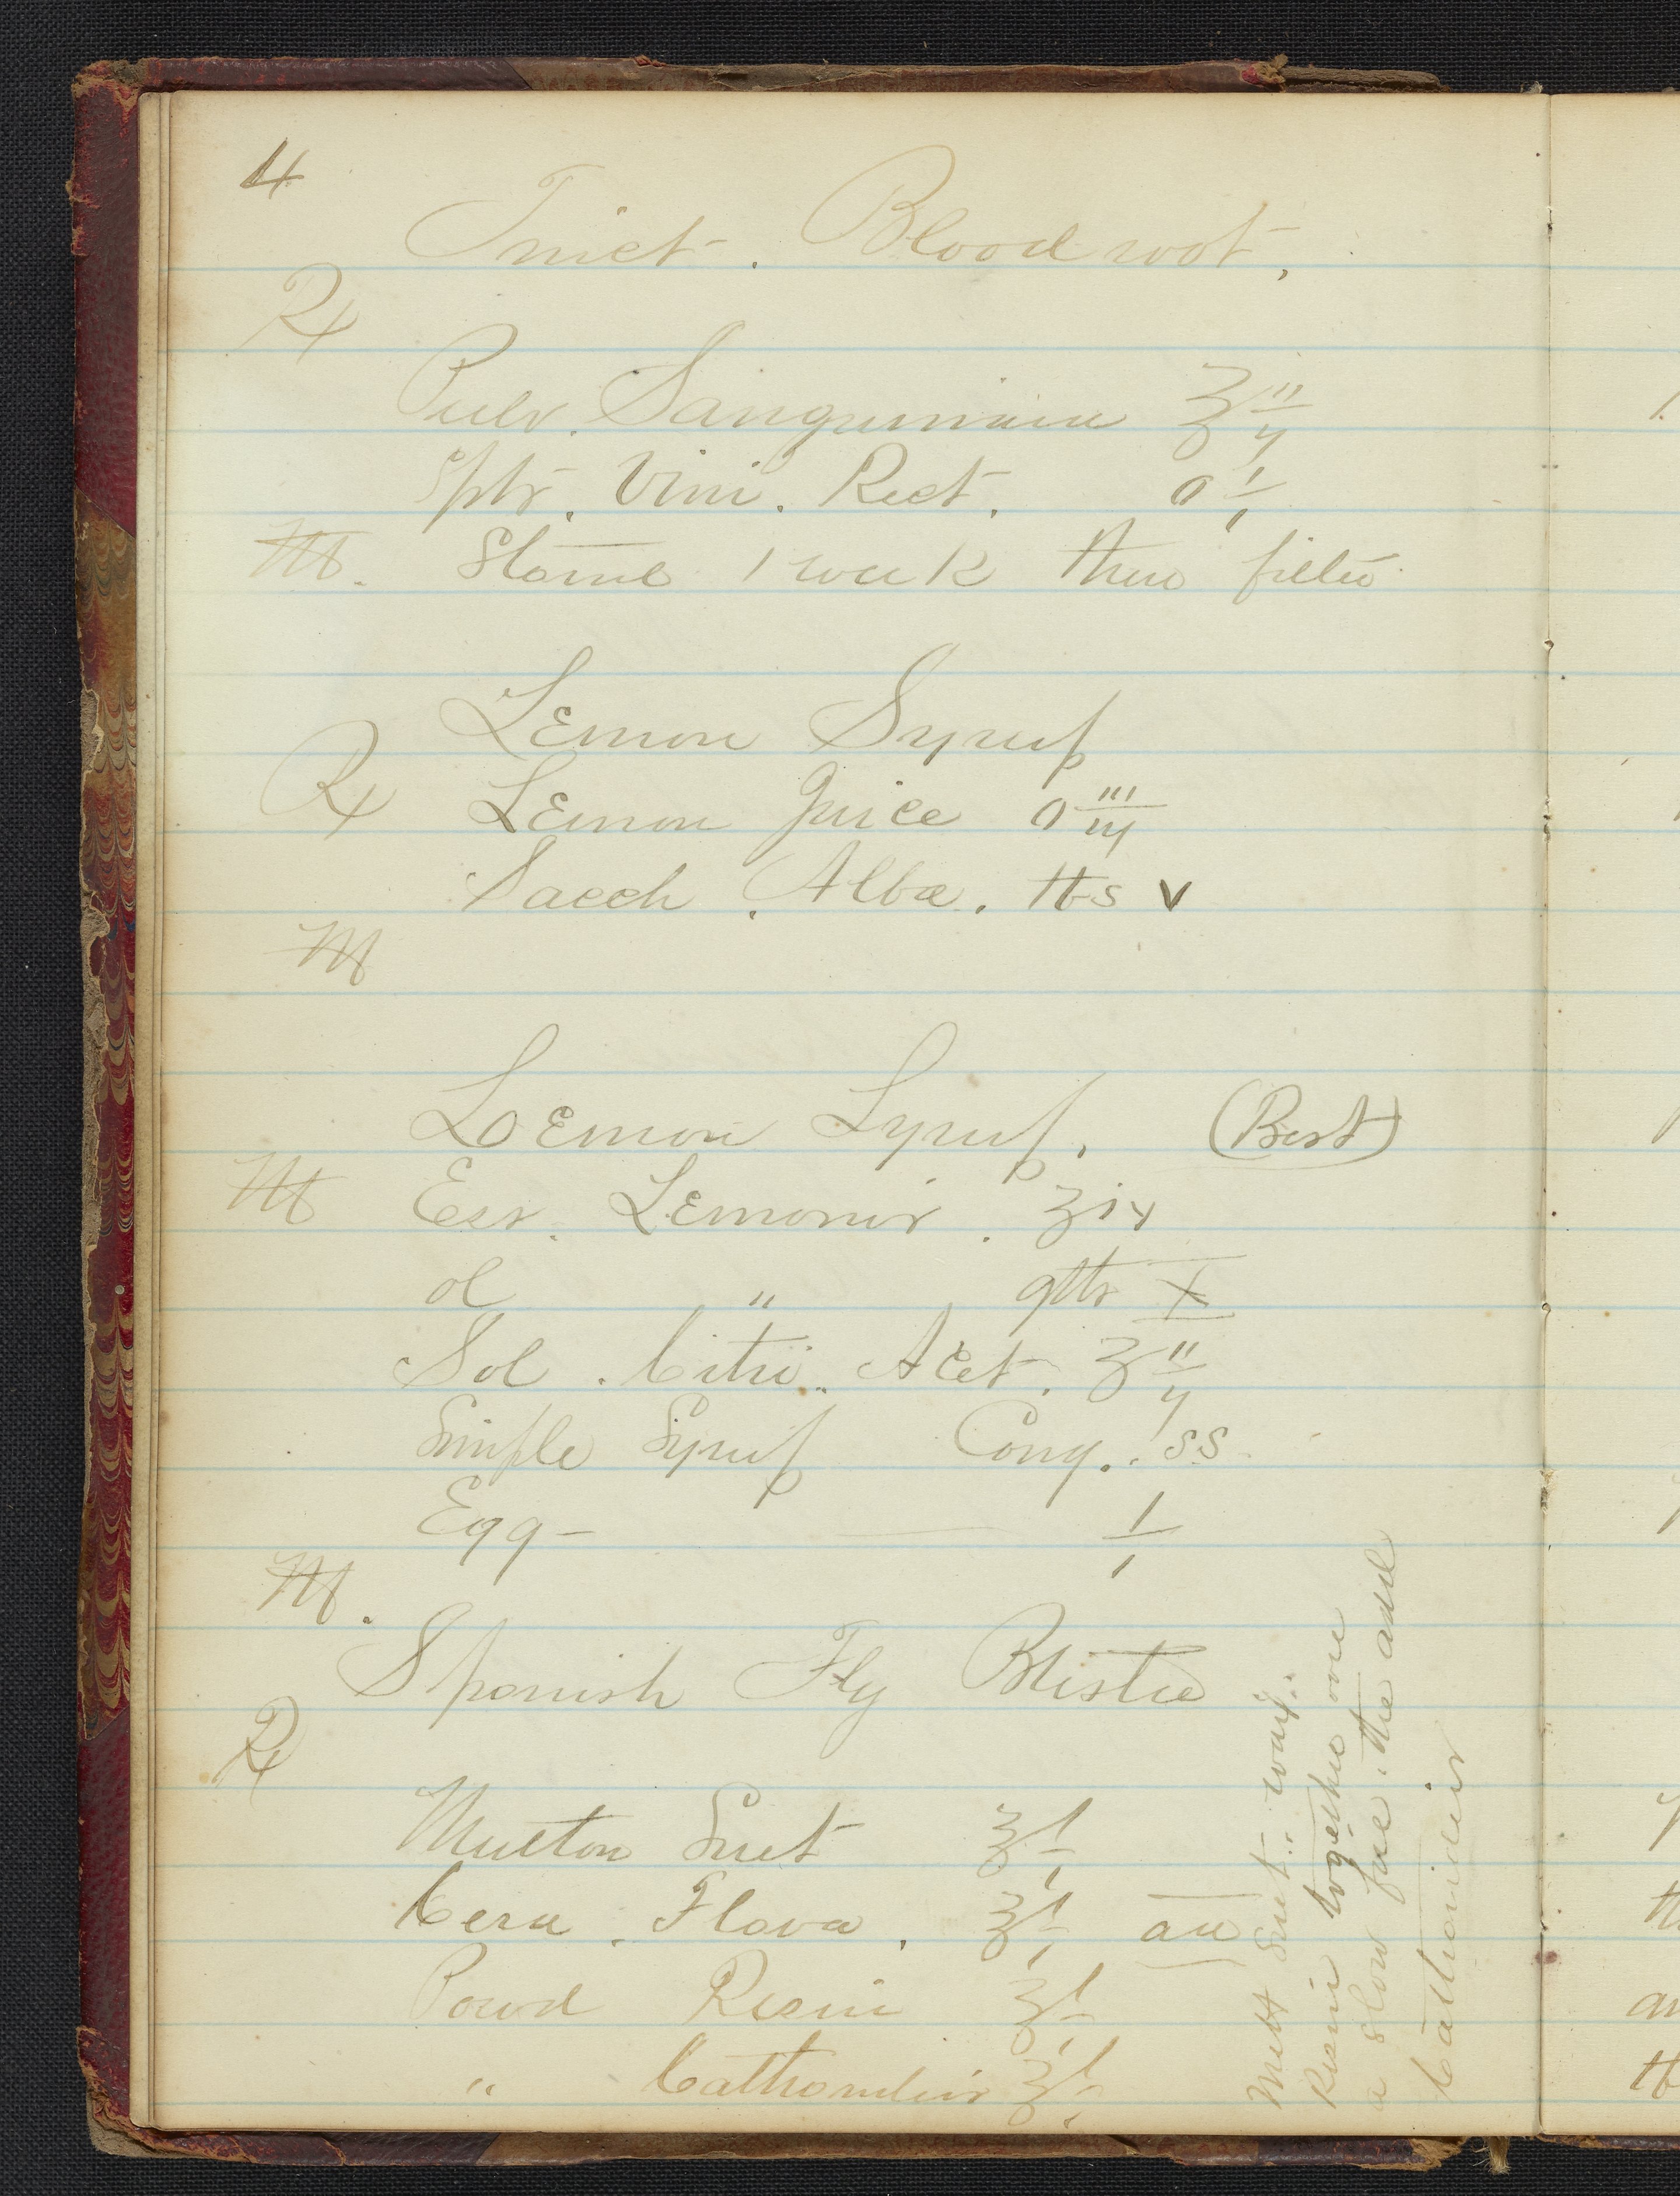 4
Tinct. Blood root.
Rx
Pulv. Sanguinaria ʒ ij
Spts. Vini. Rect. O i
M. Stand 1 week then filter
Lemon Syrup
Rx Lemon Juice O iij
Sacch. Alba. lbs v
M
Lemon Syrup. (Best)
M Ess. Lemonis. ʒiv
Ol " gtts X
Sol. Citri. Acet. ʒ ij
Simple Syrup Cong. ss
Egg — 1
M.
Spanish Fly Blister
Rx
Mutton Suet ℥i
Cera. Flava. ℥i aa
Powd Resin ℥i
" Catharides ℥i
Melt Suet.. wax..
Resin together over
a slow fire. then add
Catharides